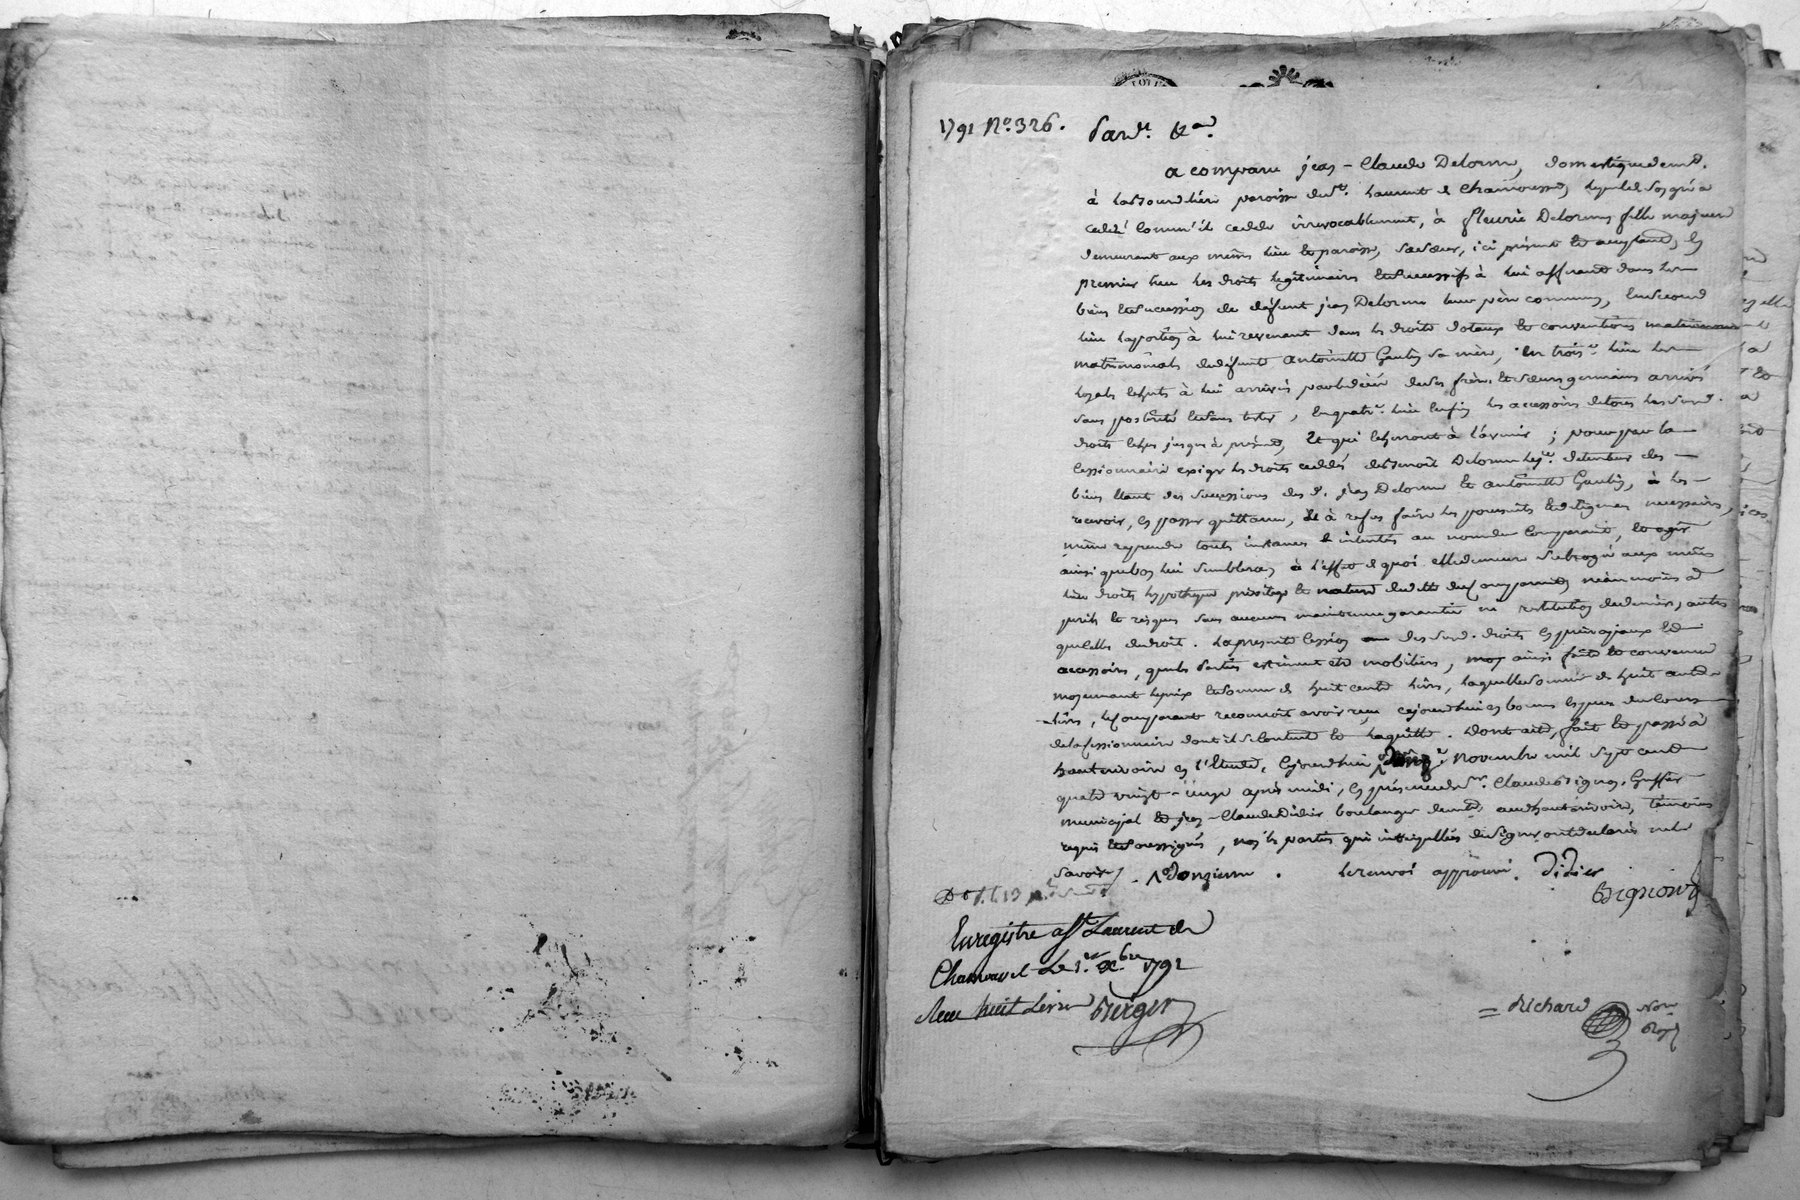 1791 N.º 326.
Pard.t &c.a
a comparu jean-Claude Delorme, domestique dem.t
à paroisse de S.t Laurent de Chamousset, lequel de son gré a
ceddé comm'il cedde irrevocablement, à fleurie Delorme fille majeure
demeurant aux mêmes lieu et paroisse, sa sœur, ici présente et acceptante, en
premier lieu les droits legitimaires et successifs à lui affërants dans les
biens et succession de défunt jean Delorme leur père commun, en second
lieu la portion à lui revenant dans les droits dotaux et conventions
matrimoniales de défunte Antoinette Gaulin sa mère, en trois.e lieu les
legats échuts à lui arrivés par le décès de ses frères et sœurs germains arrivés
sans postérité et sans tester, en quatr.e lieu enfin les accessoires de tous les susd.
droits échus jusqu'à présent, et qui écherront à l'avenir ; pour par la
cessionnaire exiger les droits ceddés de Benoit Delorme detenteur des
biens étant des successions des d. jean Delorme et Antoinette Gaulin, à les
recevoir, en passer quittance, et à refus faire les poursuites et diligences necessaires,
même reprendre toutes instances intentées au nom du comparant, et agir
ainsi que bon lui semblera, à l'effet de quoi elle demeure subrogée aux mêmes
lieu droits hypotheque privilege et nature de dette du comparant, néanmoins à
perils et risques sans aucune maintenue garantie ni restitution de deniers, autres
que celles de droit. La presente cession des susd. droits en principaux et
accessoires, que les parties estiment être mobiliers, ainsi faite et convenue
moyennant le prix et somme de huit cents livres, laquelle somme de huit cents
livres, le comparant reconnoit avoir reçu cejourd'hui en bonnes espèces du cours
de la cessionnaire dont il se contente et la quitte. Dont acte, fait et passé à
hauterivoire en l'étude, cejourd'hui novembre mil sept cent
quatre vingt-onze après midi, en présence de s.r Claude Bignon, Greffier
municipal et jean-Claude Didier boulanger dem.ts aud. hauterivoire, témoins
requis et soussignés, non les parties qui interpellées de signer ont declaré ne le
savoir. onzieme . Le renvoi approuvé. Didier
Bignon
Enregistré a St Laurent de
Chamousset Le 1.er x.bre 1791
Reçu huit Livres Berger
= Richard No.re
Roy.l